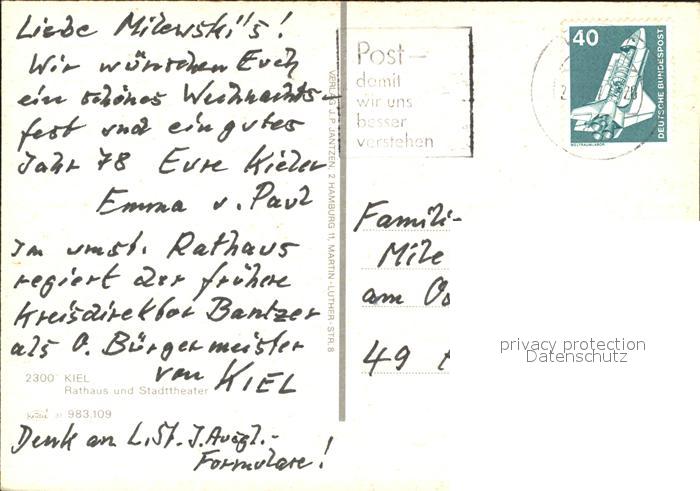 Liebe Milewski's!
Wir wünschen Euch
ein schönes Weihnachts-
fest und ein gutes
Jahr 78 Eure Kieler
Emma u. Paul
Im umst. Rathaus
regiert der frühere
Kreisdirektor Bantzer
als O. Bürgermeister
von KIEL
2300 KIEL
Rathaus und Stadttheater
983.109
Denk an L.St. J.Ausgl.-
Formulare!
VERLAG J. P. JANTZEN, 2 HAMBURG 11, MARTIN-LUTHER-STR. 8
Post –
damit
wir uns
besser
verstehen
40
DEUTSCHE BUNDESPOST
WELTRAUMLABOR
Famili-
Mile
am
49
privacy protection
Datenschutz